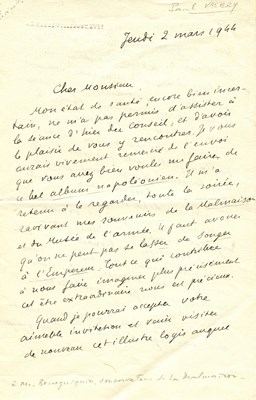 Paul Valéry
Jeudi 2 mars 1944
Cher Monsieur
Mon état de santé, encore bien incer-
tain, ne m'a pas permis d'assister à
la séance d'hier du Conseil, et d'avoir
le plaisir de vous y rencontrer. Je vous
eurais vivement remercié de l'envoi
que vous avez bien voulu me faire, de
ce bel album napoléonien. Il m'a
retenu à le regarder, toute la soirée,
ravivant mes souvenirs de la Malmaison
et du Musée de l'armée. Il faut avouer
qu'on ne peut pas se lasser de songer
à l'Empereur. Tout ce qui contribue
à nous faire imaginer plus précisément
cet être extraordinaire nous est précieux.
Quand je pourrai accepter votre
aimable invitation et venir visiter
de nouveau cet illustre logis auquel
à M. conservateur de la Malmaison